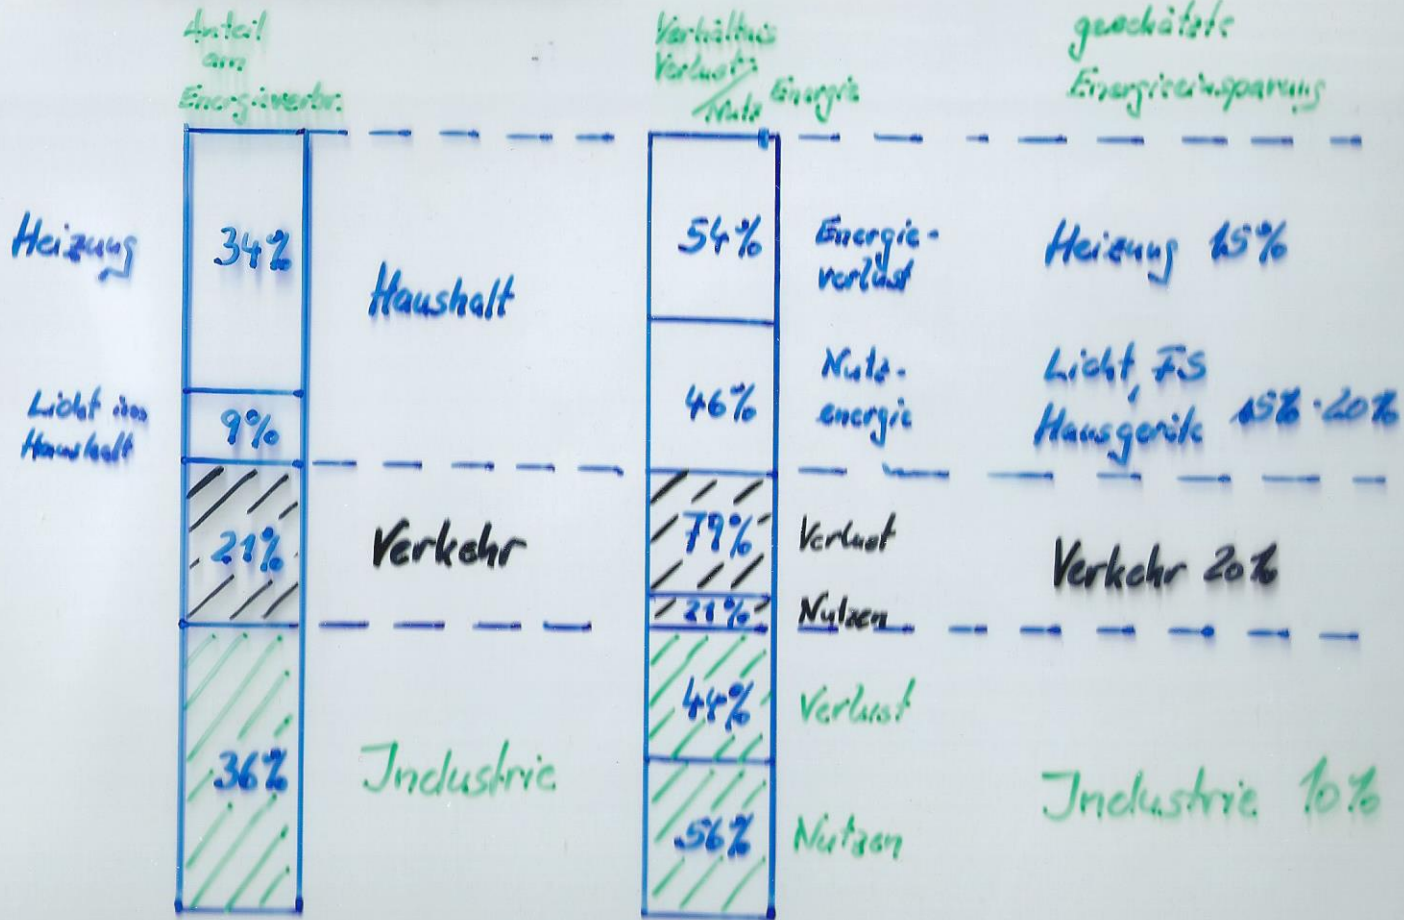 Anteil
am
Energieverbr.
Verhältnis
Verlust:
Nutz Energie
geschätzte
Energieeinsparung
Heizung
34%
Haushalt
54%
Energie-
verlust
Heizung 15%
Licht im
Haushalt
9%
46%
Nutz-
energie
Licht, FS
Hausgeräte 15%-20%
21%
Verkehr
79%
Verlust
Verkehr 20%
21%
Nutzen
36%
Industrie
44%
Verlust
56%
Nutzen
Industrie 10%